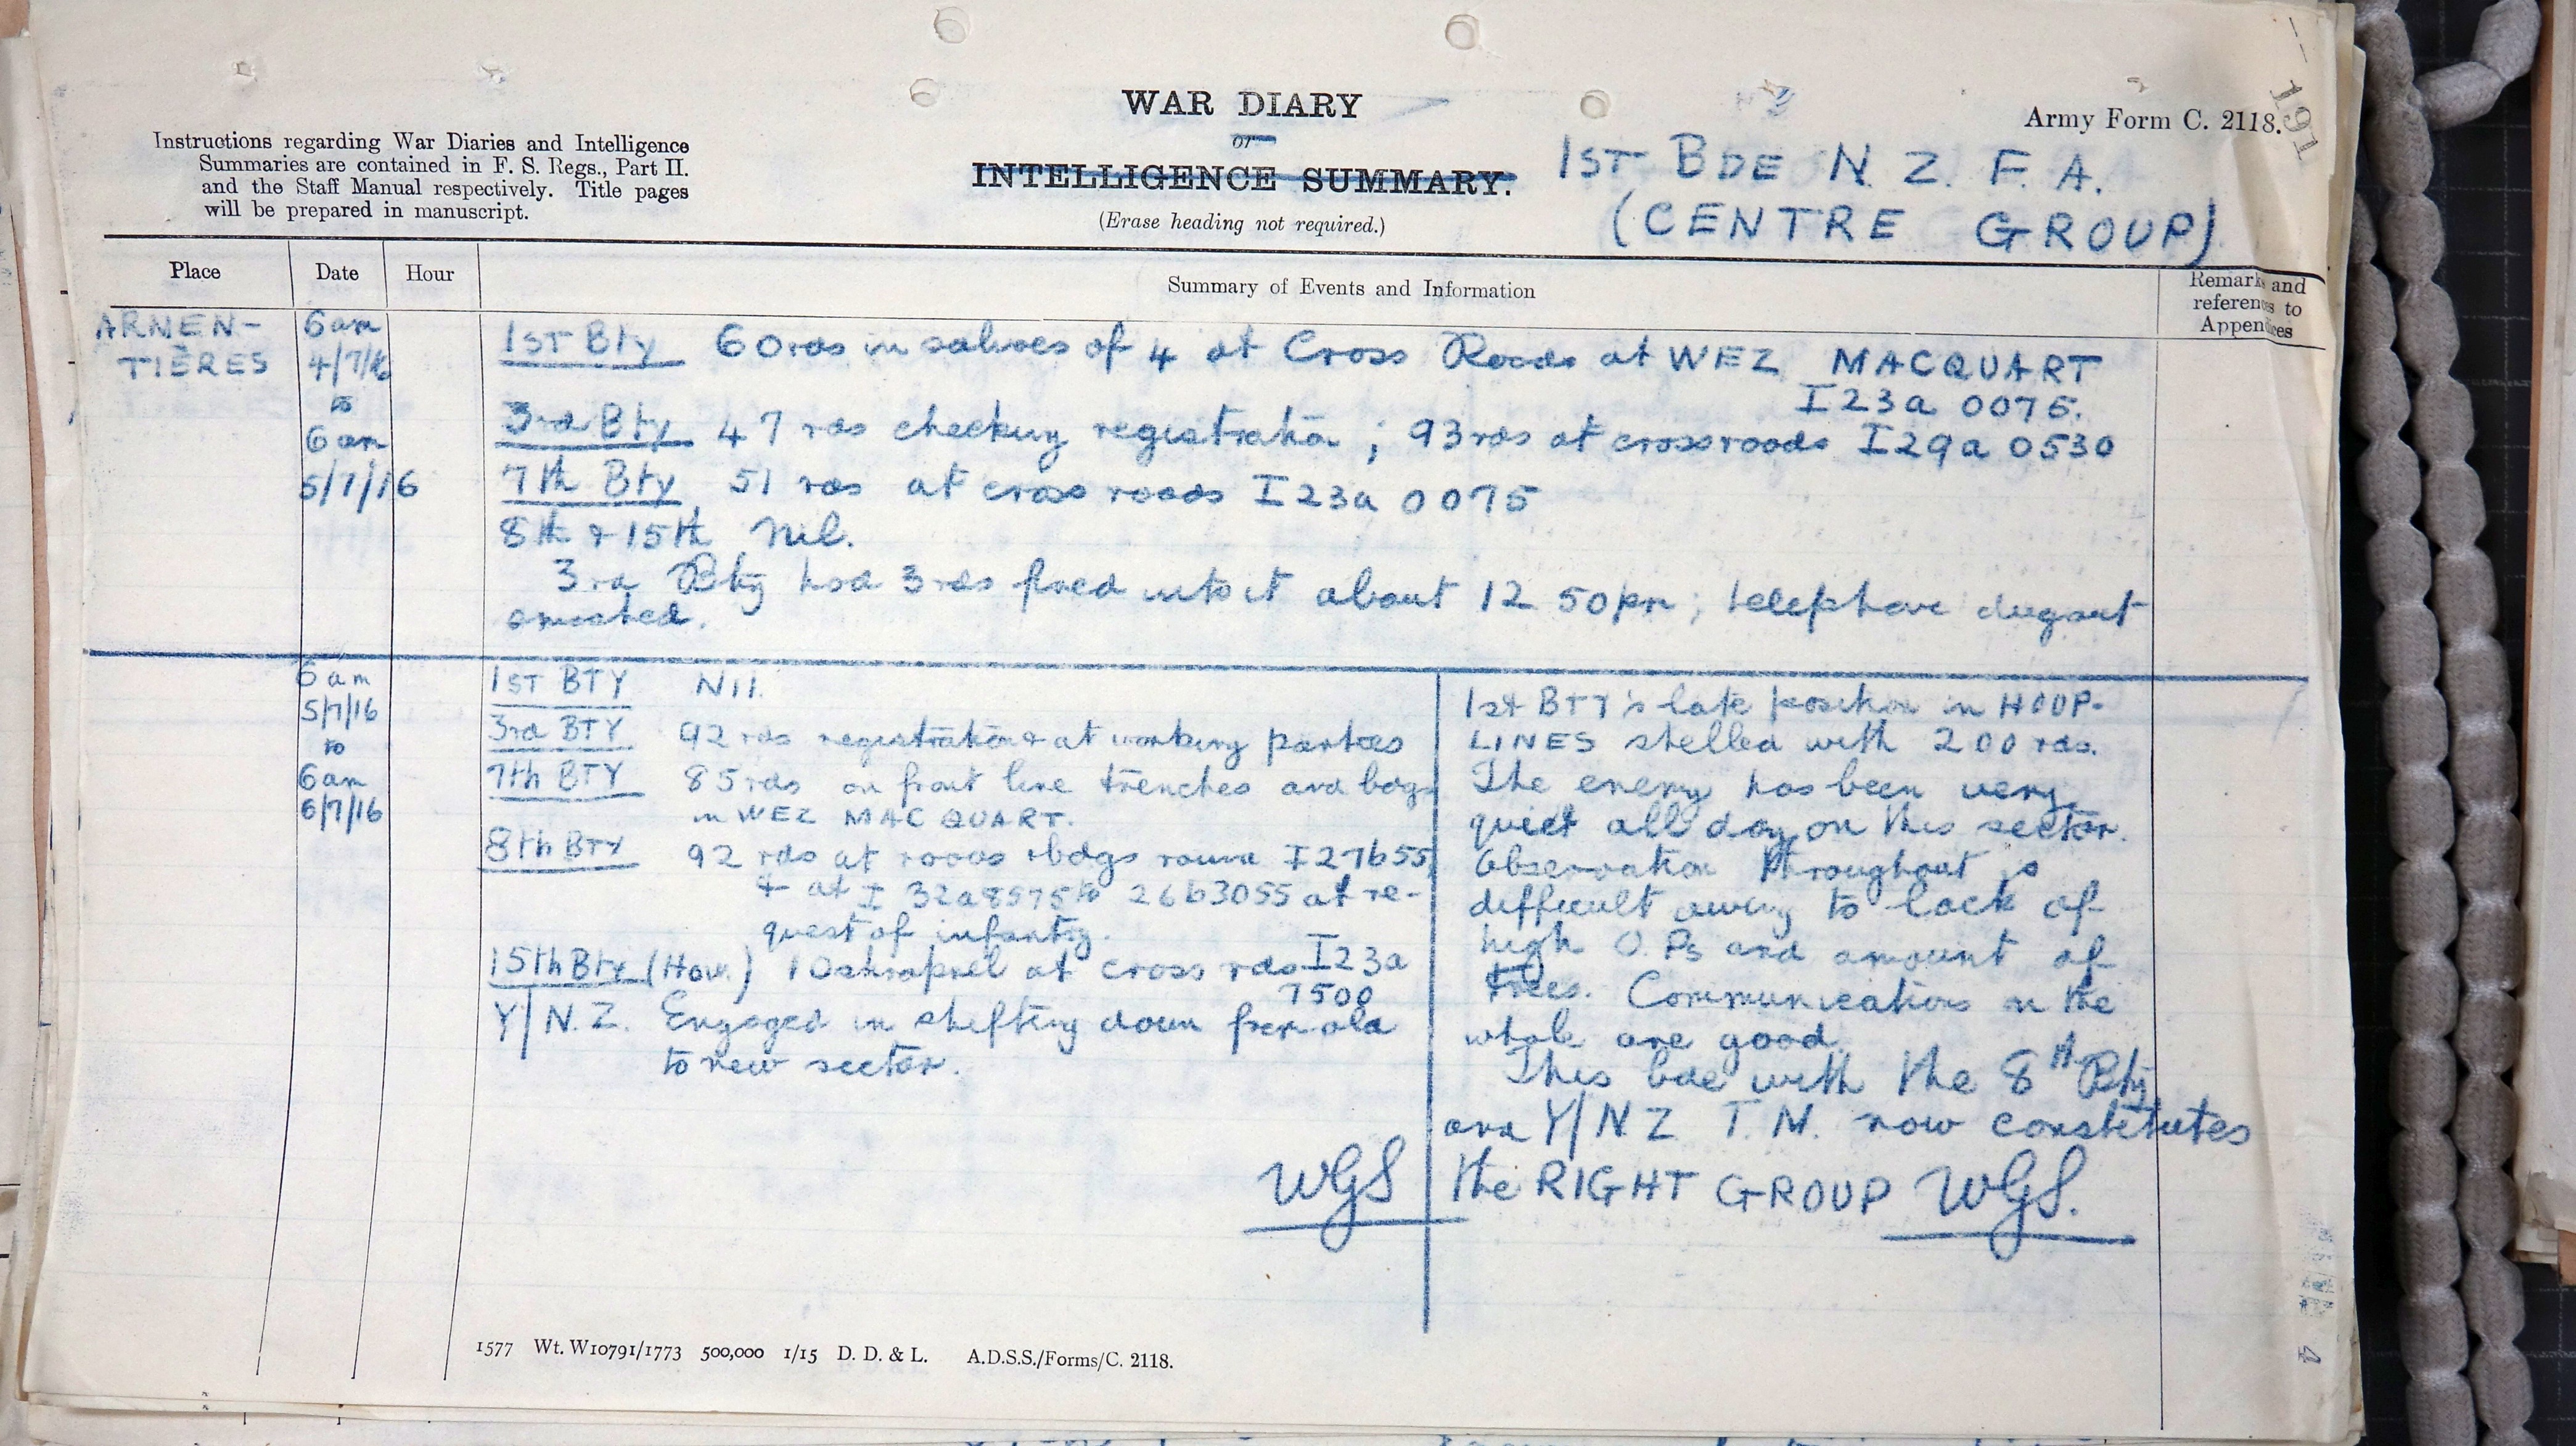 WAR DIARY
or
INTELLIGENCE SUMMARY.
(Erase heading not required.)
Army Form C. 2118.
191
Instructions regarding War Diaries and Intelligence
Summaries are contained in F. S. Regs., Part II.
and the Staff Manual respectively. Title pages
will be prepared in manuscript.
1ST BDE N. Z. F. A.
(CENTRE GROUP)
Place
Date
Hour
Summary of Events and Information
Remarks and
references to
Appendices
ARMEN-
TIÈRES
6 am
4/7/16
to
6 am
5/7/16
1ST Bty 60 rds in salvoes of 4 at Cross Roads at WEZ MACQUART
I23a 0075.
3rd Bty 47 rds checking registration; 93 rds at crossroads I29a 0530
7th Bty 51 rds at cross roads I23a 0075
8th & 15th Nil.
3rd Bty had 3 rds fired into it about 12 50 pm; telephone dugout
smashed.
6 am
5/7/16
to
6 am
6/7/16
1ST BTY Nil.
3rd BTY 92 rds registration & at working parties
7th BTY 85 rds on front line trenches and bdgs
in WEZ MACQUART.
8th BTY 92 rds at roads & bdgs round I27b55
& at I 32a8575 to 26b3055 at re-
quest of infantry.
15th Bty (How.) 10 shrapnel at cross rds I23a
7500
Y/N.Z. Engaged in shifting down from old
to new sector.
WGS
1st BTY's late position in HOUP-
LINES shelled with 200 rds.
The enemy has been very
quiet all day on this sector.
Observation throughout is
difficult owing to lack of
high O.Ps and amount of
trees. Communications on the
whole are good.
This bde with the 8th Bty
and Y/N.Z T.M. now constitutes
the RIGHT GROUP WGS.
1577 Wt. W10791/1773 500,000 1/15 D. D. & L. A.D.S.S./Forms/C. 2118.